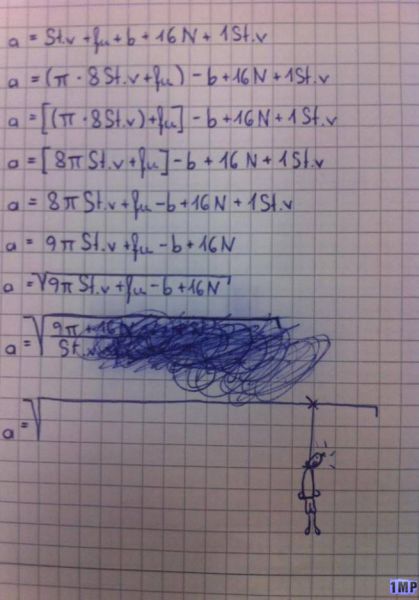 a = St.v + fu + b + 16N + 1St.v
a = (π · 8St.v + fu) - b + 16N + 1St.v
a = [(π · 8St.v) + fu] - b + 16N + 1St.v
a = [8π St.v + fu] - b + 16N + 1St.v
a = 8π St.v + fu - b + 16N + 1St.v
a = 9π St.v + fu - b + 16N
a = √9π St.v + fu - b + 16N
a = √9π + 16
St.v
a = √
1MP